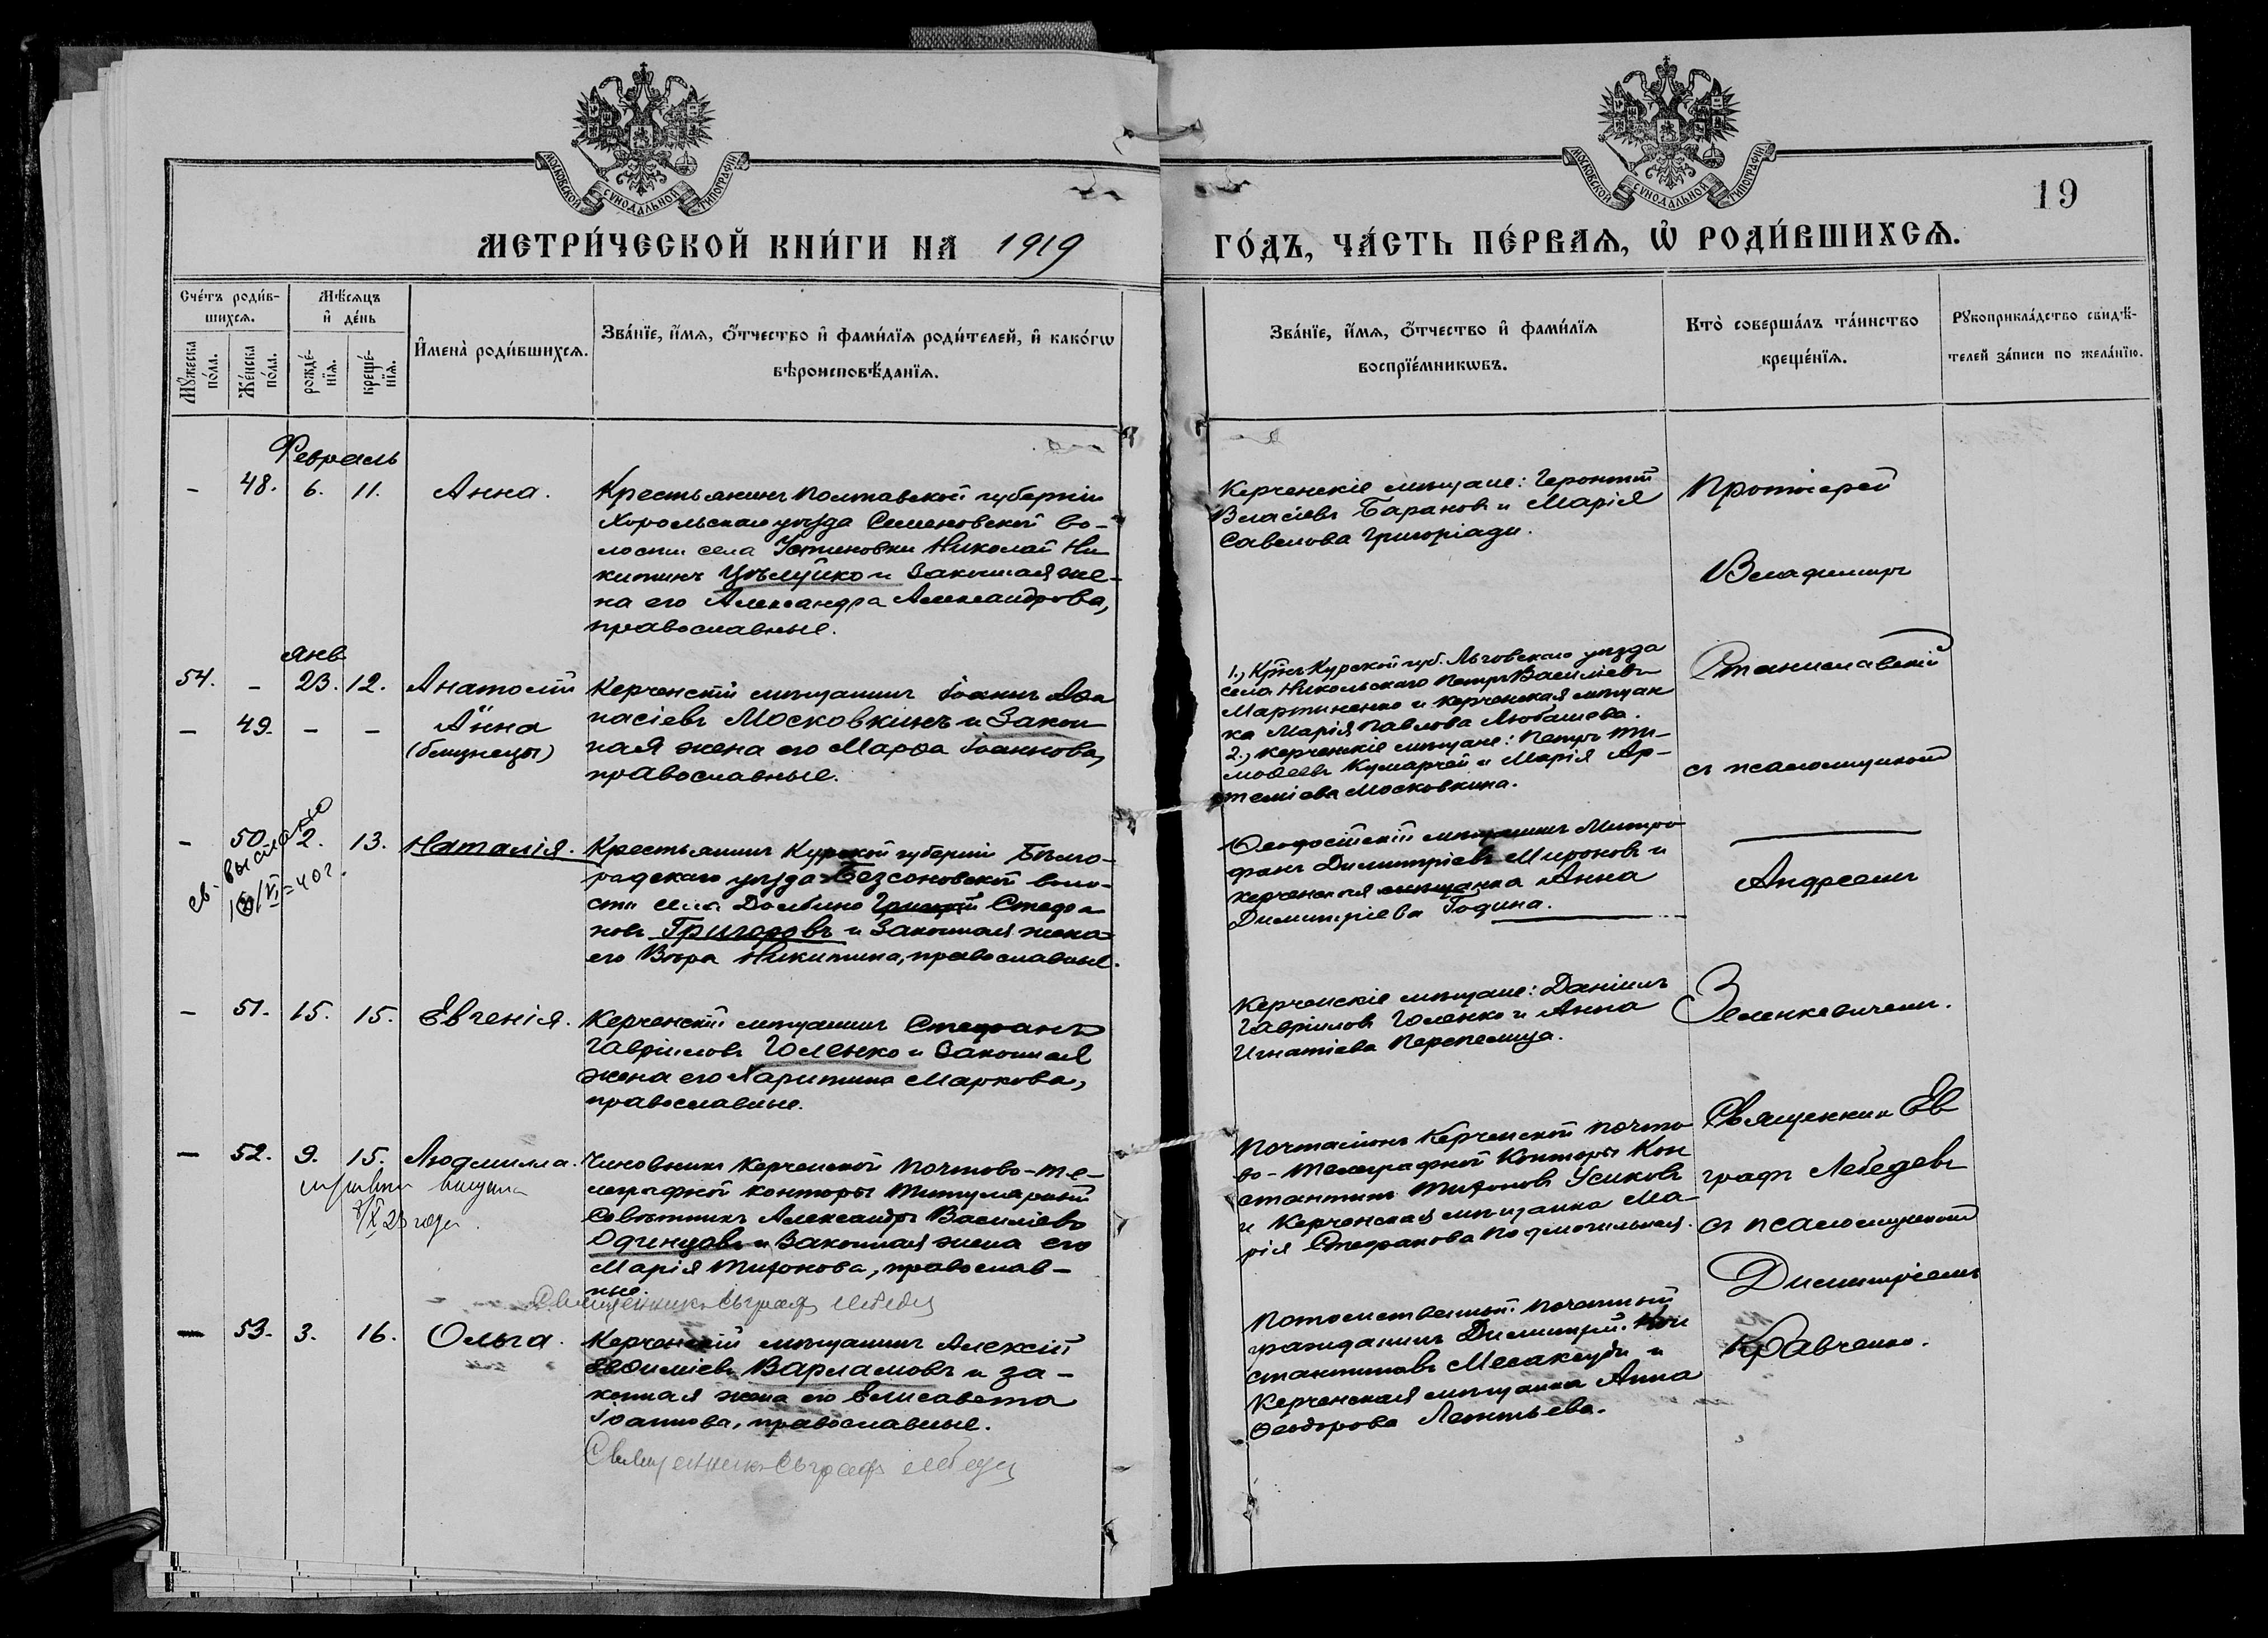 МОСКОВСКОЙ СУНОДАЛЬНОЙ ТИПОГРАФІИ
МОСКОВСКОЙ СУНОДАЛЬНОЙ ТИПОГРАФІИ
19
МЕТРИ́ЧЕСКОЙ КНИ́ГИ НА 1919
ГО́ДЪ, ЧА́СТЬ ПЕ́РВАѦ, Ѡ҆ РОДИ́ВШИХСѦ.
Сче́тъ роди́в-
шихсѧ.
Мꙋ́жеска
по́ла.
Же́нска
по́ла.
Мѣ́сѧцъ
и҆ де́нь
рожде́-
нїѧ.
креще́-
нїѧ.
И҆мена̀ роди́вшихсѧ.
Зва́нїе, и҆́мѧ, ѻ҆́тчество и҆ фами́лїѧ роди́телей, и҆ како́гѡ
вѣроисповѣ́данїѧ.
Зва́нїе, и҆́мѧ, ѻ҆́тчество и҆ фами́лїѧ
воспрїе́мникѡвъ.
Кто̀ соверша́лъ та́инство
креще́нїѧ.
Рꙋкоприкла́дство свидѣ́-
телей за́писи по жела́нїю.
Февраль
- 48. 6. 11. Анна.
Крестьянинъ Полтавской губерніи
Хорольскаго уѣзда Семеновской во-
лости села Устиновки Николай Ни
китинъ Цѣлуйко и законная же-
на его Александра Александрова,
православные.
Керченскіе мѣщане: Геронтій
Власіевъ Баранов и Марія
Савелова Григоріади.
Протоіерей
Владимиръ
Станиславскій
съ псаломщикомъ
Андреемъ
Зеленкевичемъ.
янв
54. - 23. 12. Анатолій
- 49. - - Анна
(близнецы)
Керченскій мѣщанинъ Іоаннъ Аѳа
насіевъ Московкинъ и закон
ная жена его Марѳа Іоаннова,
православные.
1., Кр-нъ Курской губ. Льговскаго уѣзда
села Никольскаго Петръ Василіевъ
Мартиненко и керченская мѣщан
ка Марія Павлова Любашева.
2., Керченскіе мѣщане: Петръ Ти-
моѳеевъ Кумарчей и Марія Ар-
теміева Московкина.
- 50. 2. 13. Наталія.
св. выслано
VI=40 г.
Крестьянинъ Курской губерніи Бѣло-
градскаго уѣзда Безсоновской воло-
сти села Долбино Стефа
новъ Григоровъ и законная жена
его Вѣра Никитина, православные.
Ѳеодосійскій мѣщанинъ Митро
фанъ Димитріевъ Миронов и
керченская мѣщанка Анна
Димитріева Година.
- 51. 15. 15. Евгенія.
Керченскій мѣщанинъ Стефанъ
Гавріиловъ Голенко и законная
жена его Харитина Маркова,
православные.
Керченскіе мѣщане: Даніилъ
Гавріиловъ Голенко и Анна
Игнатіева Перепелица.
- 52. 9. 15. Людмилла.
X 23 года.
Чиновникъ Керченской Почтово-те-
леграфной конторы Титулярный
Совѣтникъ Александръ Василіевъ
Одинцовъ и законная жена его
Марія Тихонова, православ-
ные.
Священникъ Евграфъ Лебедев
Почтальонъ Керченской почто
во-телеграфной конторы Кон
стантинъ Тихоновъ Усиковъ
и Керченская мѣщанка Ма-
рія Стефанова Подмогильная.
Священник Ев
графъ Лебедевъ
съ псаломщикомъ
Димитріемъ
Кравченко.
- 53. 3. 16. Ольга.
Керченскій мѣщанинъ Алексій
Евѳиміевъ Варламовъ и за-
конная жена его Елисавета
Іоаннова, православные.
Священникъ Евграфъ Лебедев
Потомственный почетный
гражданинъ Димитрій Кон
стантиновъ Месаксуди и
Керченская мѣщанка Анна
Ѳеодорова Леонтьева.